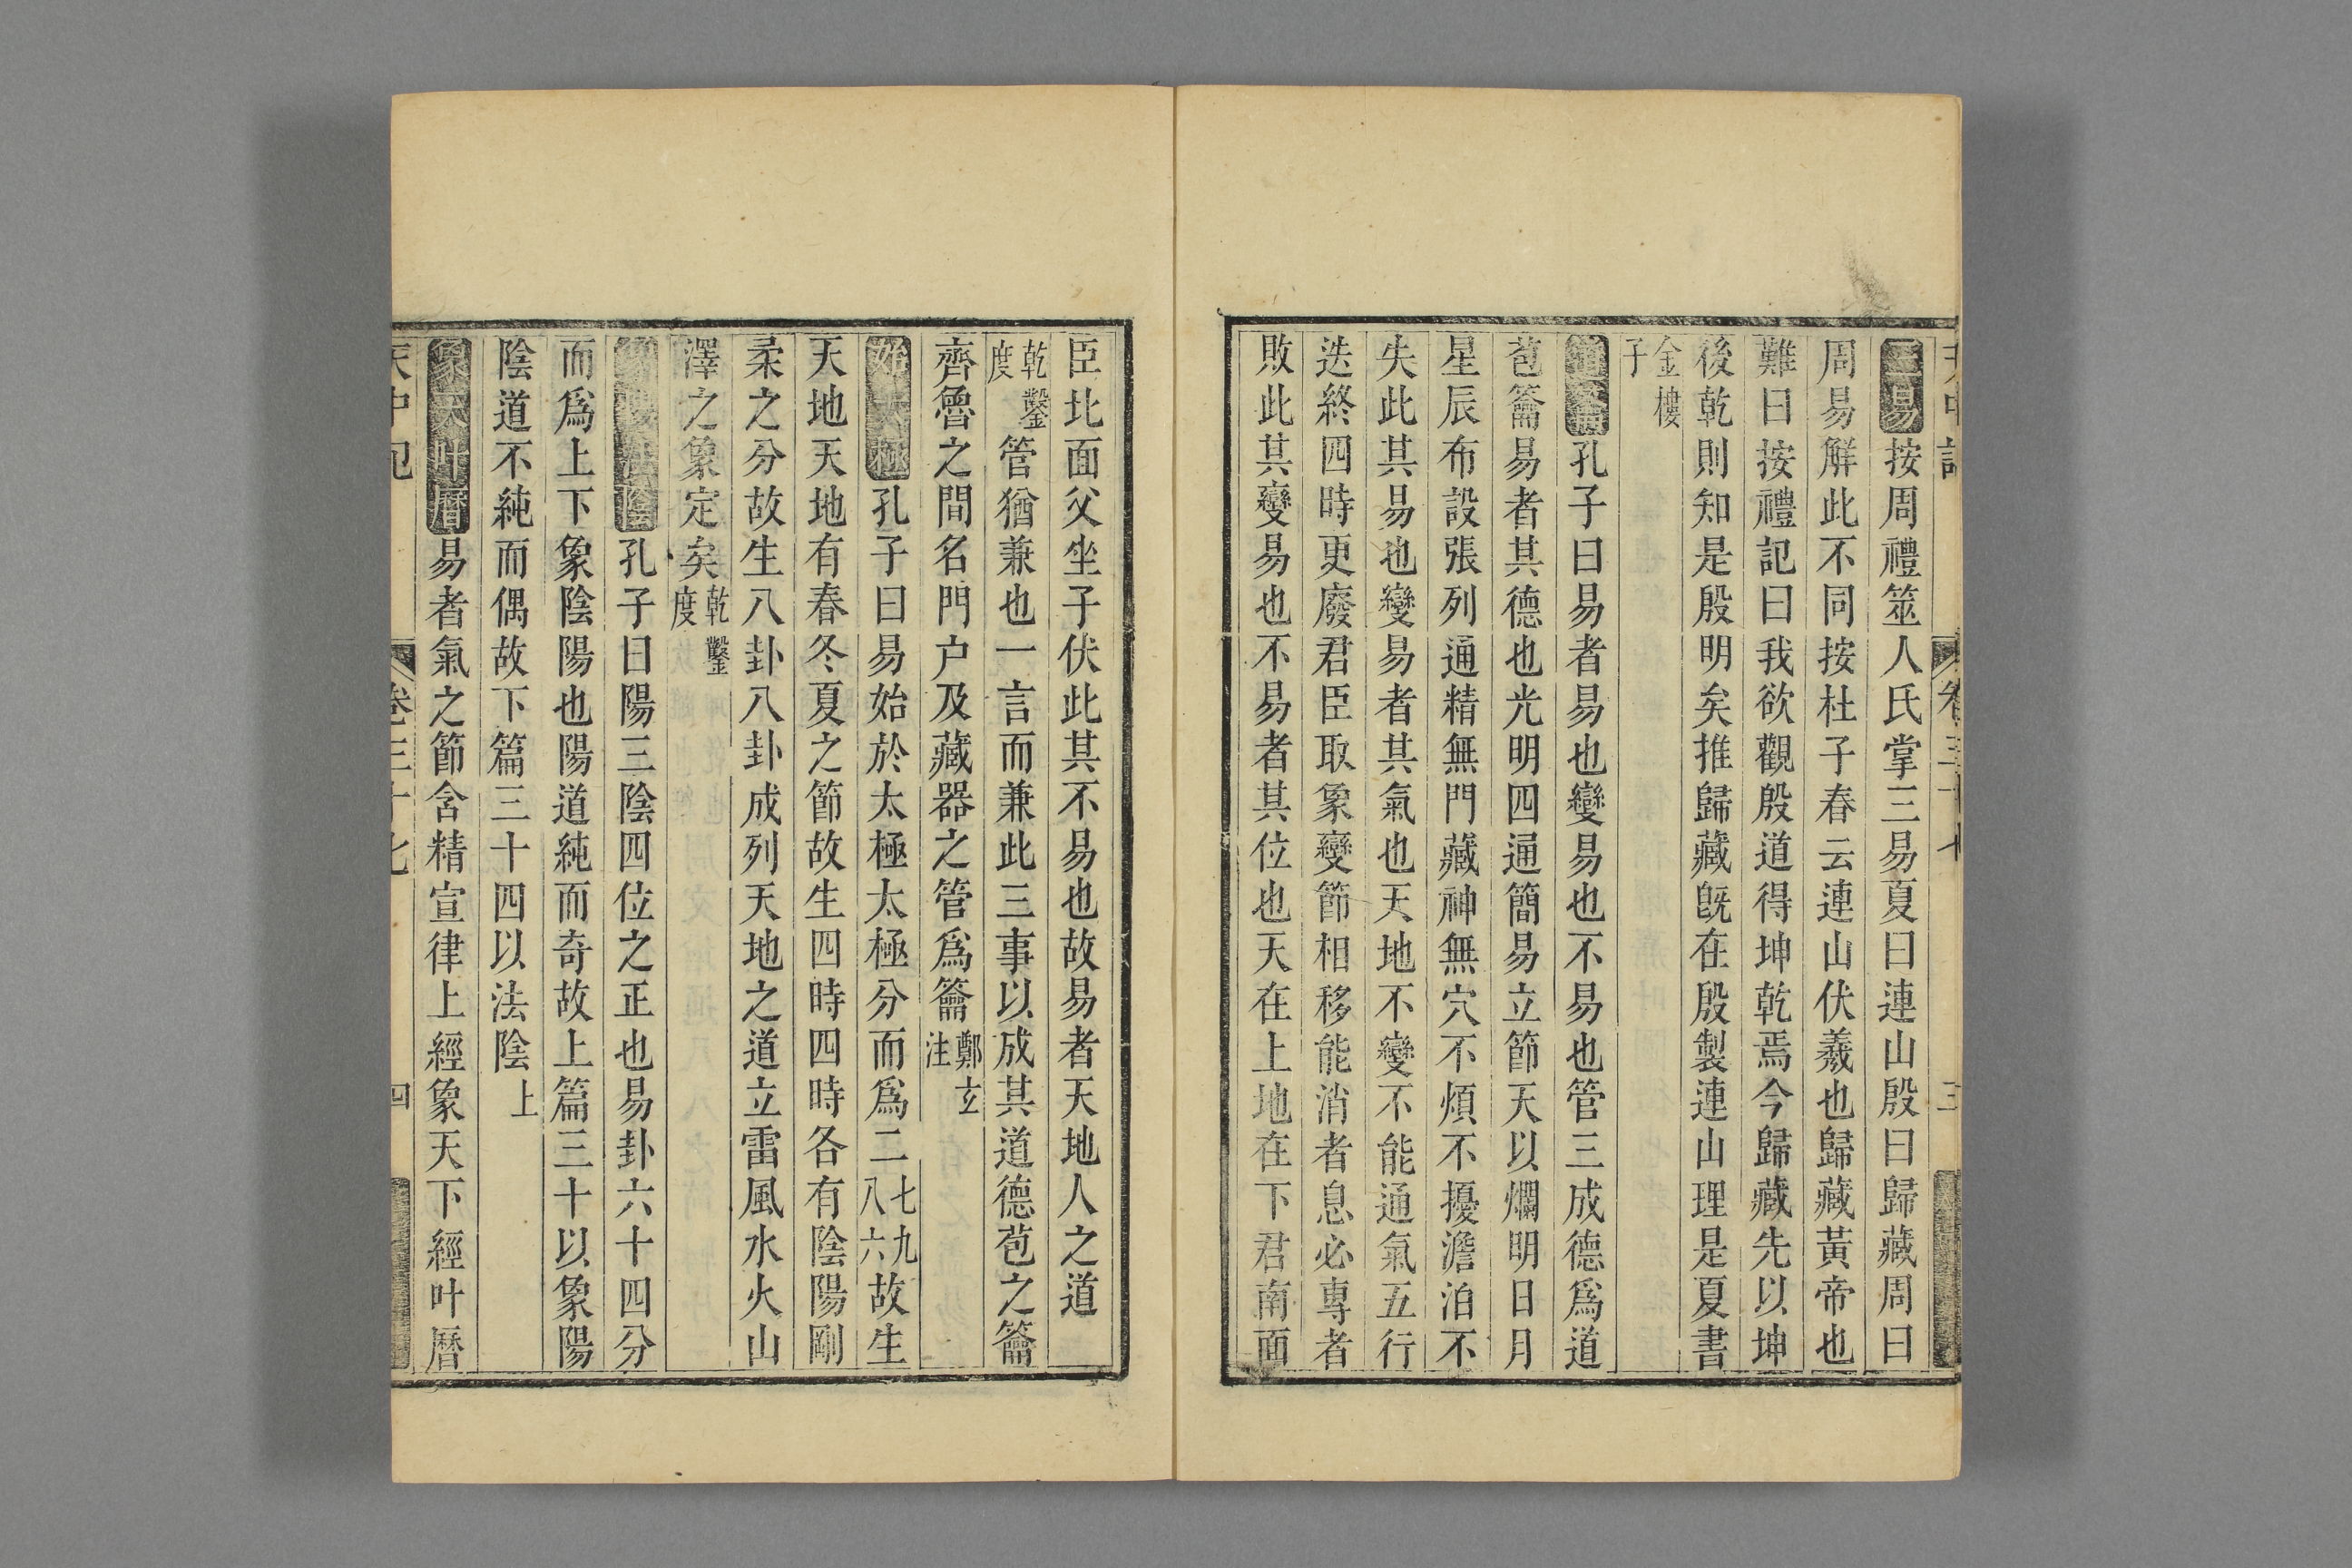 三易按周禮筮人氏掌三易夏曰連山殷曰歸藏周曰
周易解此不同按杜子春云連山伏羲也歸藏黃帝也
難曰按禮記曰我欲觀殷道得坤乾焉今歸藏先以坤
後乾則知是殷明矣推歸藏既在殷製連山理是夏書
金樓子
道苞籥孔子曰易者易也變易也不易也管三成德為道
苞籥易者其德也光明四通簡易立節天以爛明日月
星辰布設張列通精無門藏神無穴不煩不擾澹泊不
失此其易也變易者其氣也天地不變不能通氣五行
迭終四時更廢君臣取象變節相移能消者息必專者
敗此其變易也不易者其位也天在上地在下君南面
臣北面父坐子伏此其不易也故易者天地人之道
乾鑿度管猶兼也一言而兼此三事以成其道德苞之籥
齊魯之間名門户及藏器之管爲籥鄭玄注
始太極孔子曰易始於太極太極分而爲二七九八六故生
天地天地有春冬夏之節故生四時四時各有陰陽剛
柔之分故生八卦八卦成列天地之道立雷風水火山
澤之象定矣乾鑿度
象陽法陰孔子曰陽三陰四位之正也易卦六十四分
而爲上下象陰陽也陽道純而奇故上篇三十以象陽
陰道不純而偶故下篇三十四以法陰上
象天叶曆易者氣之節含精宣律上經象天下經叶曆
天中記 卷三十七 四